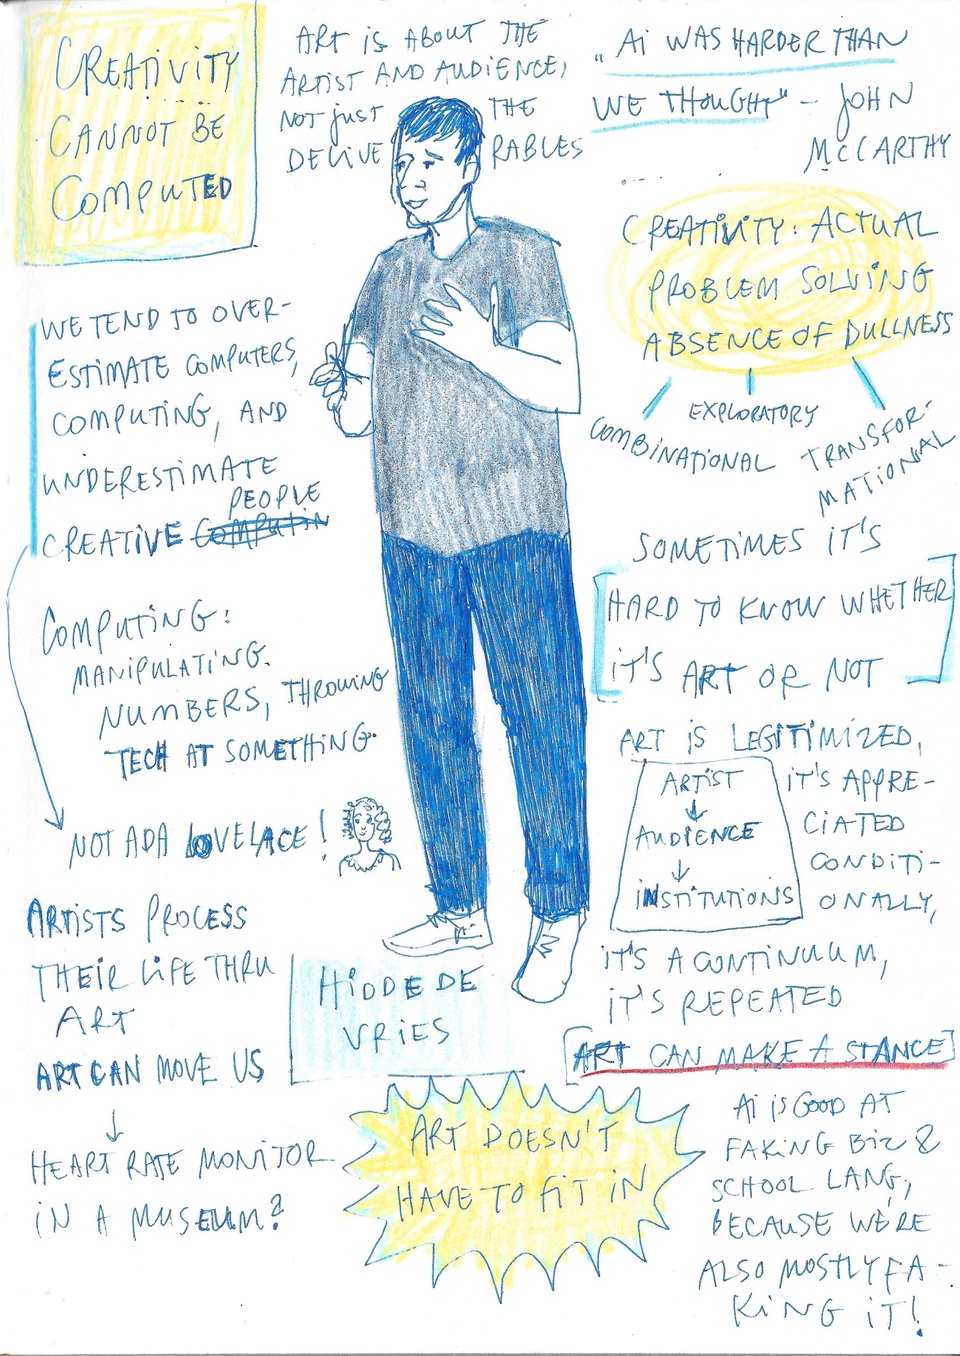 CREATIVITY
CANNOT BE
COMPUTED
ART IS ABOUT THE
ARTIST AND AUDIENCE,
NOT JUST THE
DELIVE RABLES
„AI WAS HARDER THAN
WE THOUGHT" - JOHN
MCCARTHY
CREATIVITY: ACTUAL
PROBLEM SOLVING
ABSENCE OF DULLNESS
COMBINATIONAL
EXPLORATORY
TRANSFOR-
MATIONAL
WE TEND TO OVER-
ESTIMATE COMPUTERS,
COMPUTING, AND
UNDERESTIMATE
PEOPLE
CREATIVE COMPUTIN
COMPUTING:
MANIPULATING
NUMBERS, THROWING
TECH AT SOMETHING.
NOT ADA LOVELACE!
ARTISTS PROCESS
THEIR LIFE THRU
ART
ART CAN MOVE US
HEART RATE MONITOR
IN A MUSEUM?
HIDDE DE
VRIES
ART DOESN'T
HAVE TO FIT IN
SOMETIMES IT'S
HARD TO KNOW WHETHER
IT'S ART OR NOT
ART IS LEGITIMIZED,
ARTIST
AUDIENCE
INSTITUTIONS
IT'S APPRE-
CIATED
CONDITI-
ONALLY,
IT'S A CONTINUUM,
IT'S REPEATED
ART CAN MAKE A STANCE
AI IS GOOD AT
FAKING BIZ &
SCHOOL LANG,
BECAUSE WE'RE
ALSO MOSTLY FA-
KING IT!